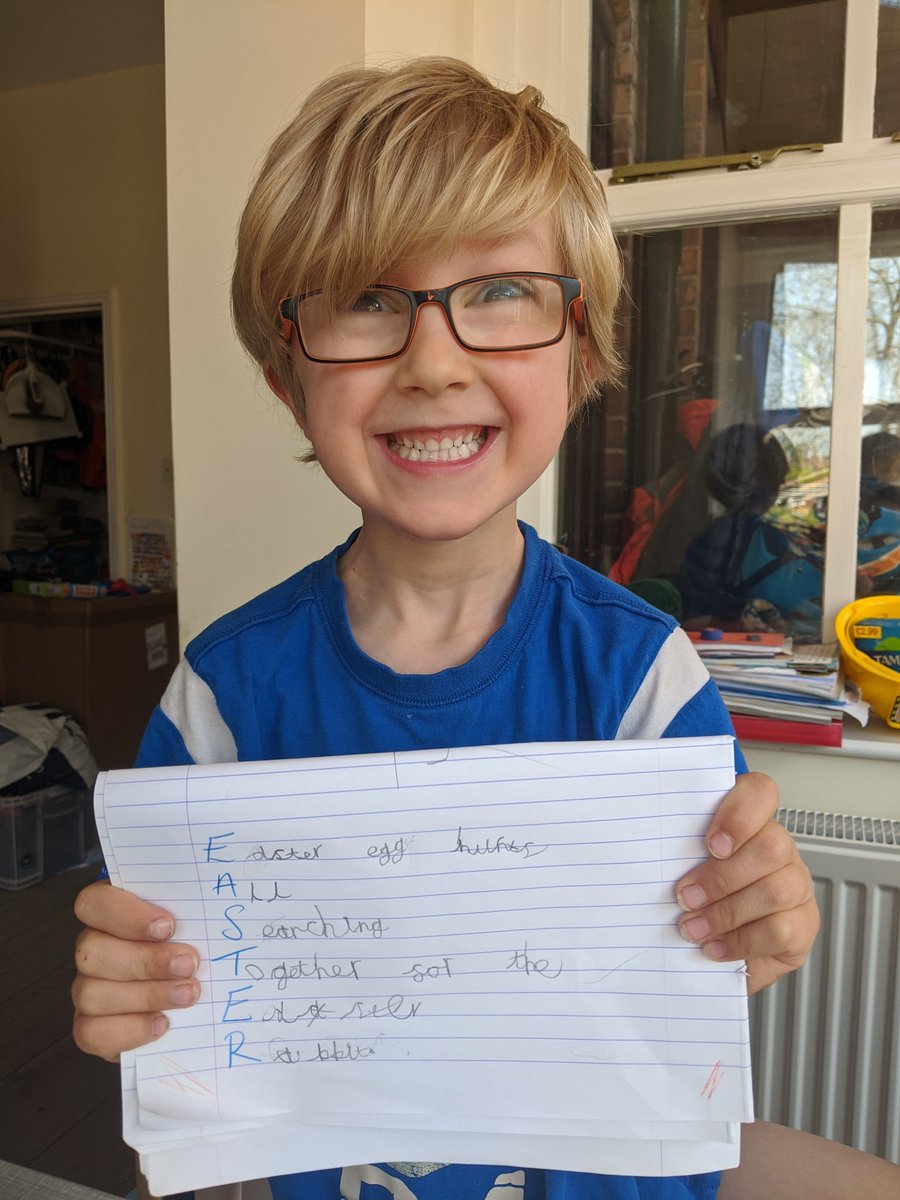 Easter egg hunts
All
Searching
Together for the
Easter
Rabbit.
£2.99
TAM